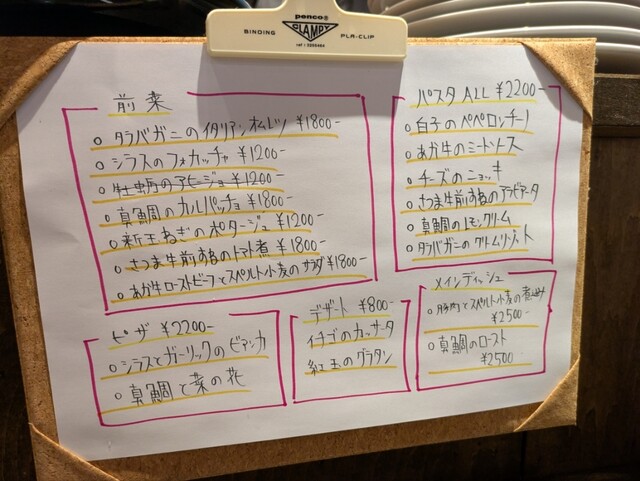 penco®
BINDING CLAMPY PLA-CLIP
前菜
○ タラバガニのイタリアンオムレツ ¥1800-
○ シラスのフォカッチャ ¥1200-
○ 牡蛎のアヒージョ ¥1200-
○ 真鯛のカルパッチョ ¥1800-
○ 新玉ねぎのポタージュ ¥1200-
○ さつま牛前すねのトマト煮 ¥1800-
○ あか牛ローストビーフとスペルト小麦のサラダ ¥1800-
パスタ ALL ¥2200-
○ 白子のペペロンチーノ
○ あか牛のミートソース
○ チーズのニョッキ
○ さつま牛前すねのアラビアータ
○ 真鯛のレモンクリーム
○ タラバガニのクリームリゾット
ピザ ¥2200-
○ シラスとガーリックのビアンカ
○ 真鯛と菜の花
デザート ¥800-
イチゴのカッサータ
紅玉のグラタン
メインディッシュ
○ 豚肉とスペルト小麦の煮込み
¥2500-
○ 真鯛のロースト
¥2500